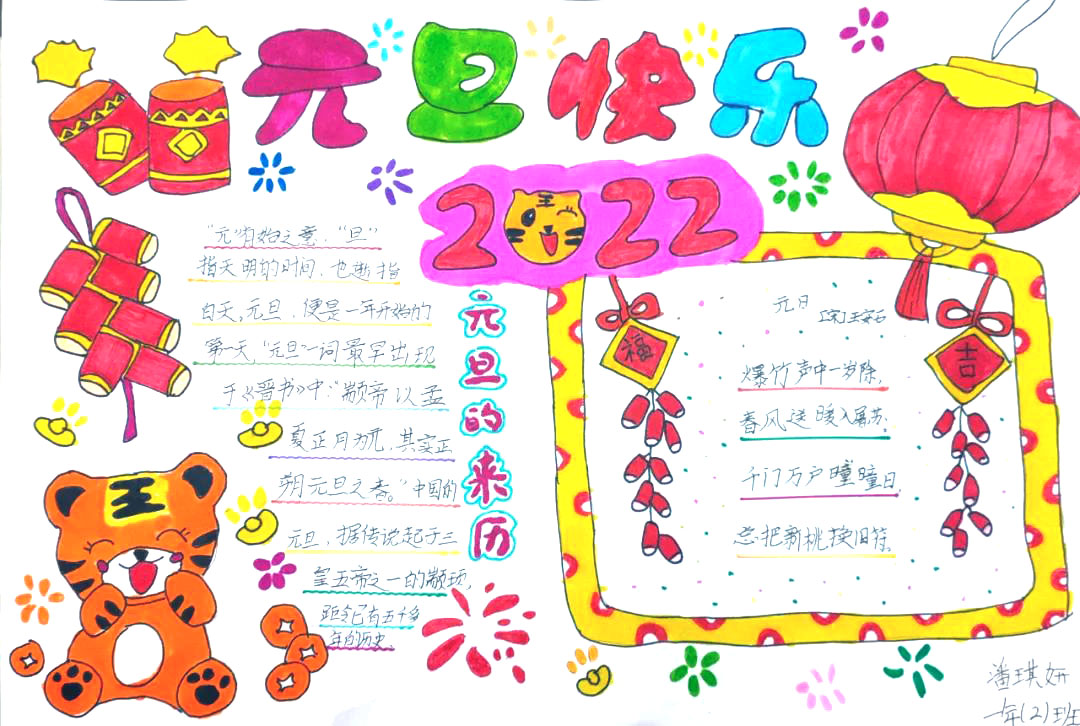 元旦快乐
2022
元旦的来历
“元”有始之意，“旦”
指天明的时间，也通指
白天。元旦，便是一年开始的
第一天，“元旦”一词最早出现
于《晋书》中：“颛帝以孟
夏正月为元，其实正
朔元旦之春。”中国的
元旦，据传说起于三
皇五帝之一的颛顼，
距今已有五千多
年的历史。
王
福
吉
元日
[宋]王安石
爆竹声中一岁除，
春风送暖入屠苏。
千门万户曈曈日，
总把新桃换旧符。
潘琪妍
一年(2)班